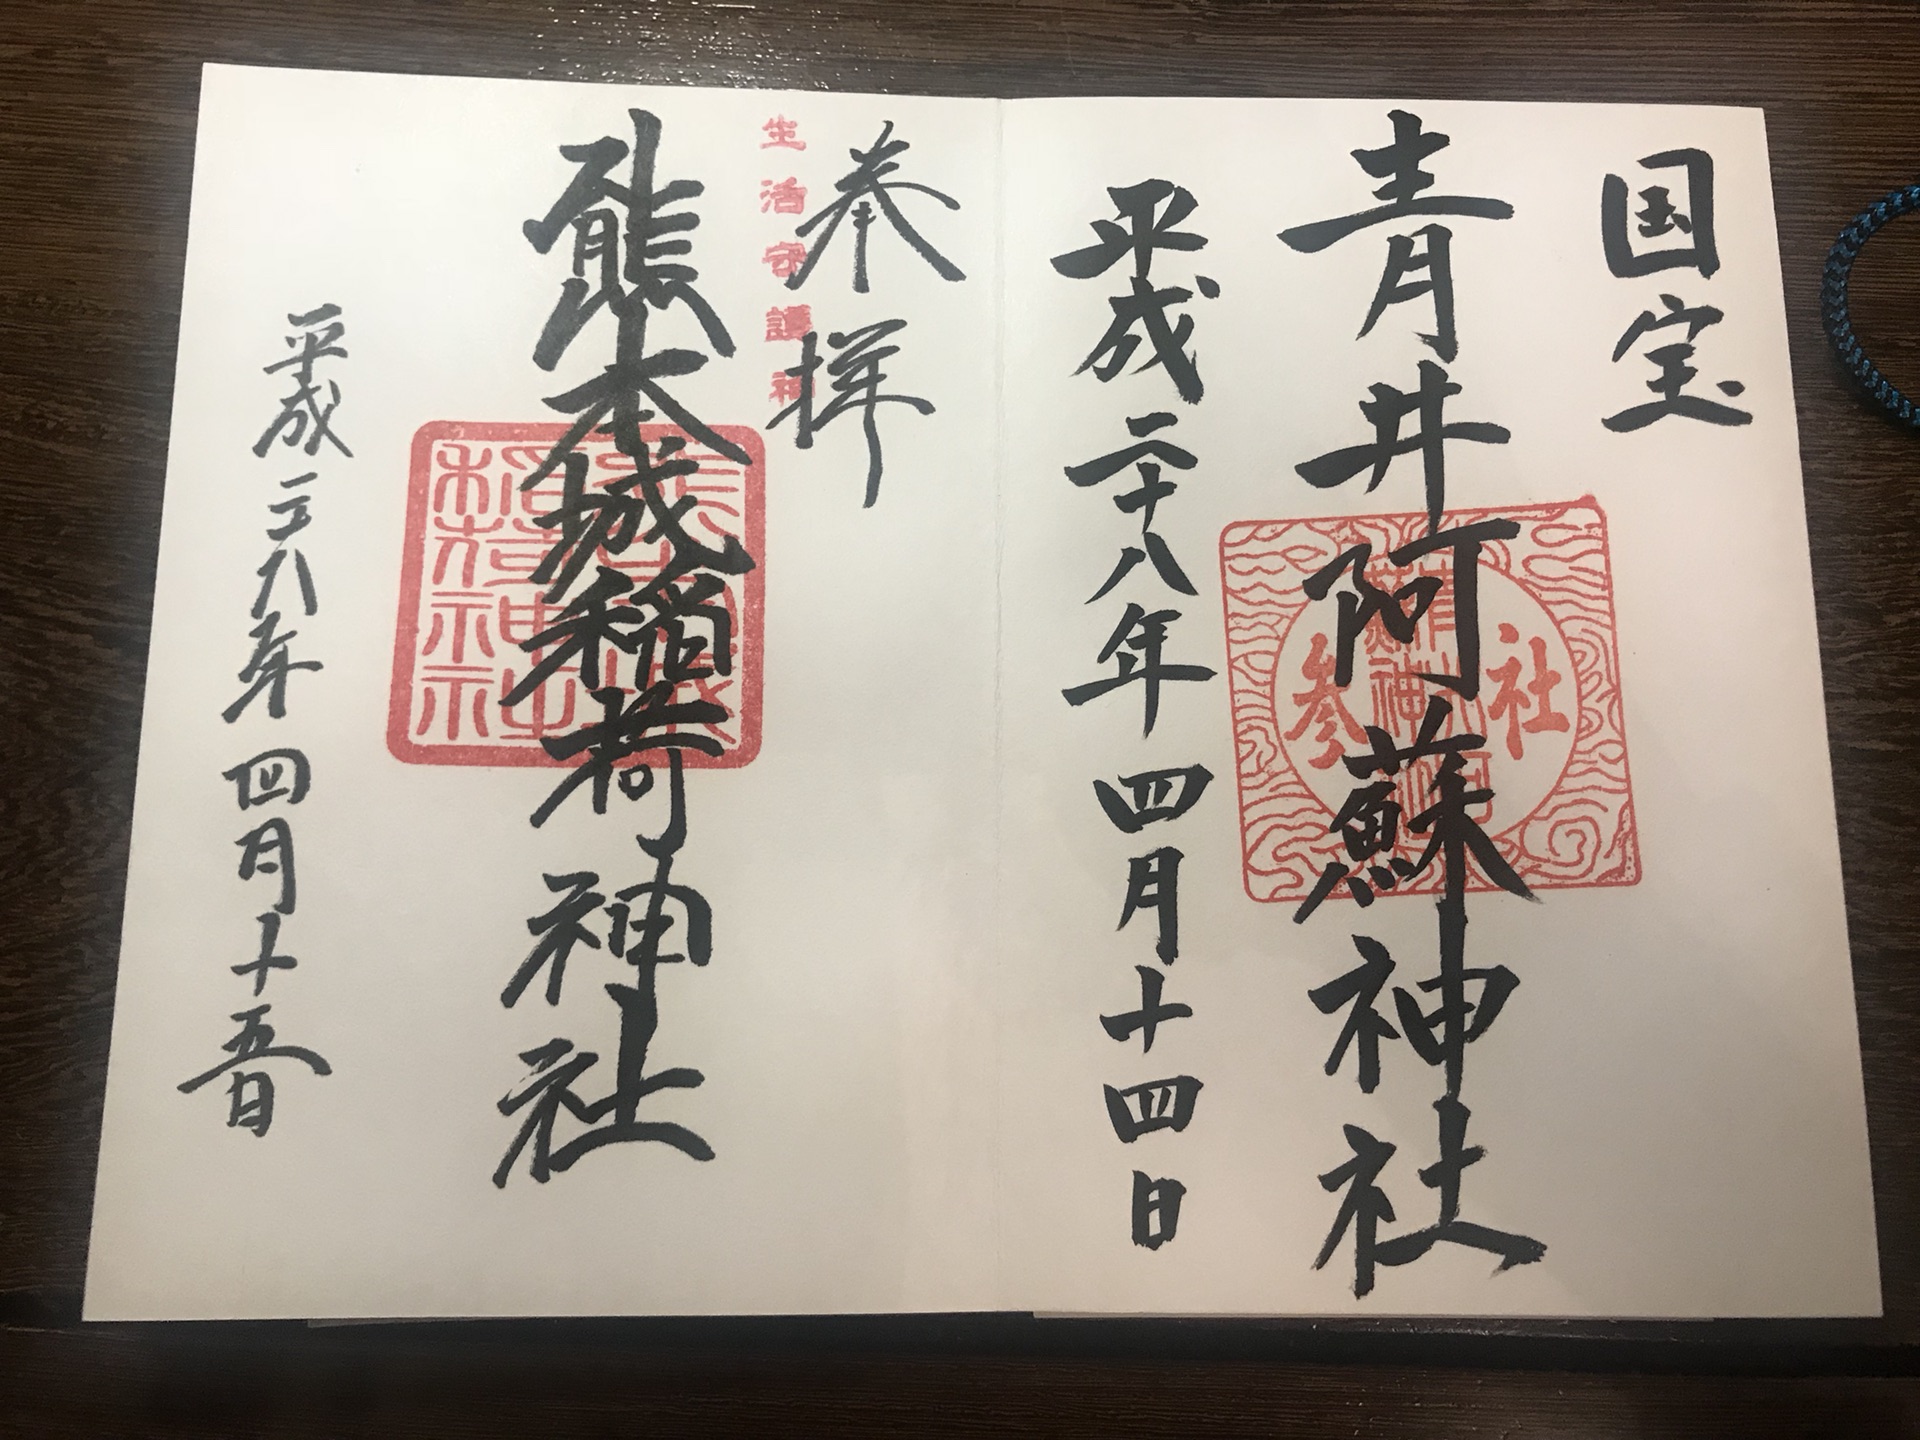 国宝
青井阿蘇神社
社参
平成二十八年四月十四日
奉拝
生活守護神
熊本城稲荷神社
稲荷神社
平成二十八年四月十五日